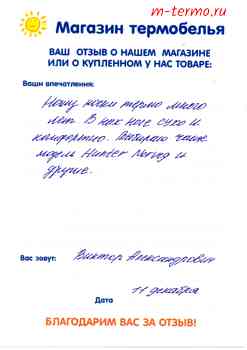 m-termo.ru
Магазин термобелья
ВАШ ОТЗЫВ О НАШЕМ МАГАЗИНЕ
ИЛИ О КУПЛЕННОМ У НАС ТОВАРЕ:
Ваши впечатления:
Ношу носки термо много
лет. В них ноге сухо и
комфортно. Выбираю чаще
модели Hunter Norveg и
другие.
Вас зовут: Виктор Александрович
11 декабря
Дата
БЛАГОДАРИМ ВАС ЗА ОТЗЫВ!